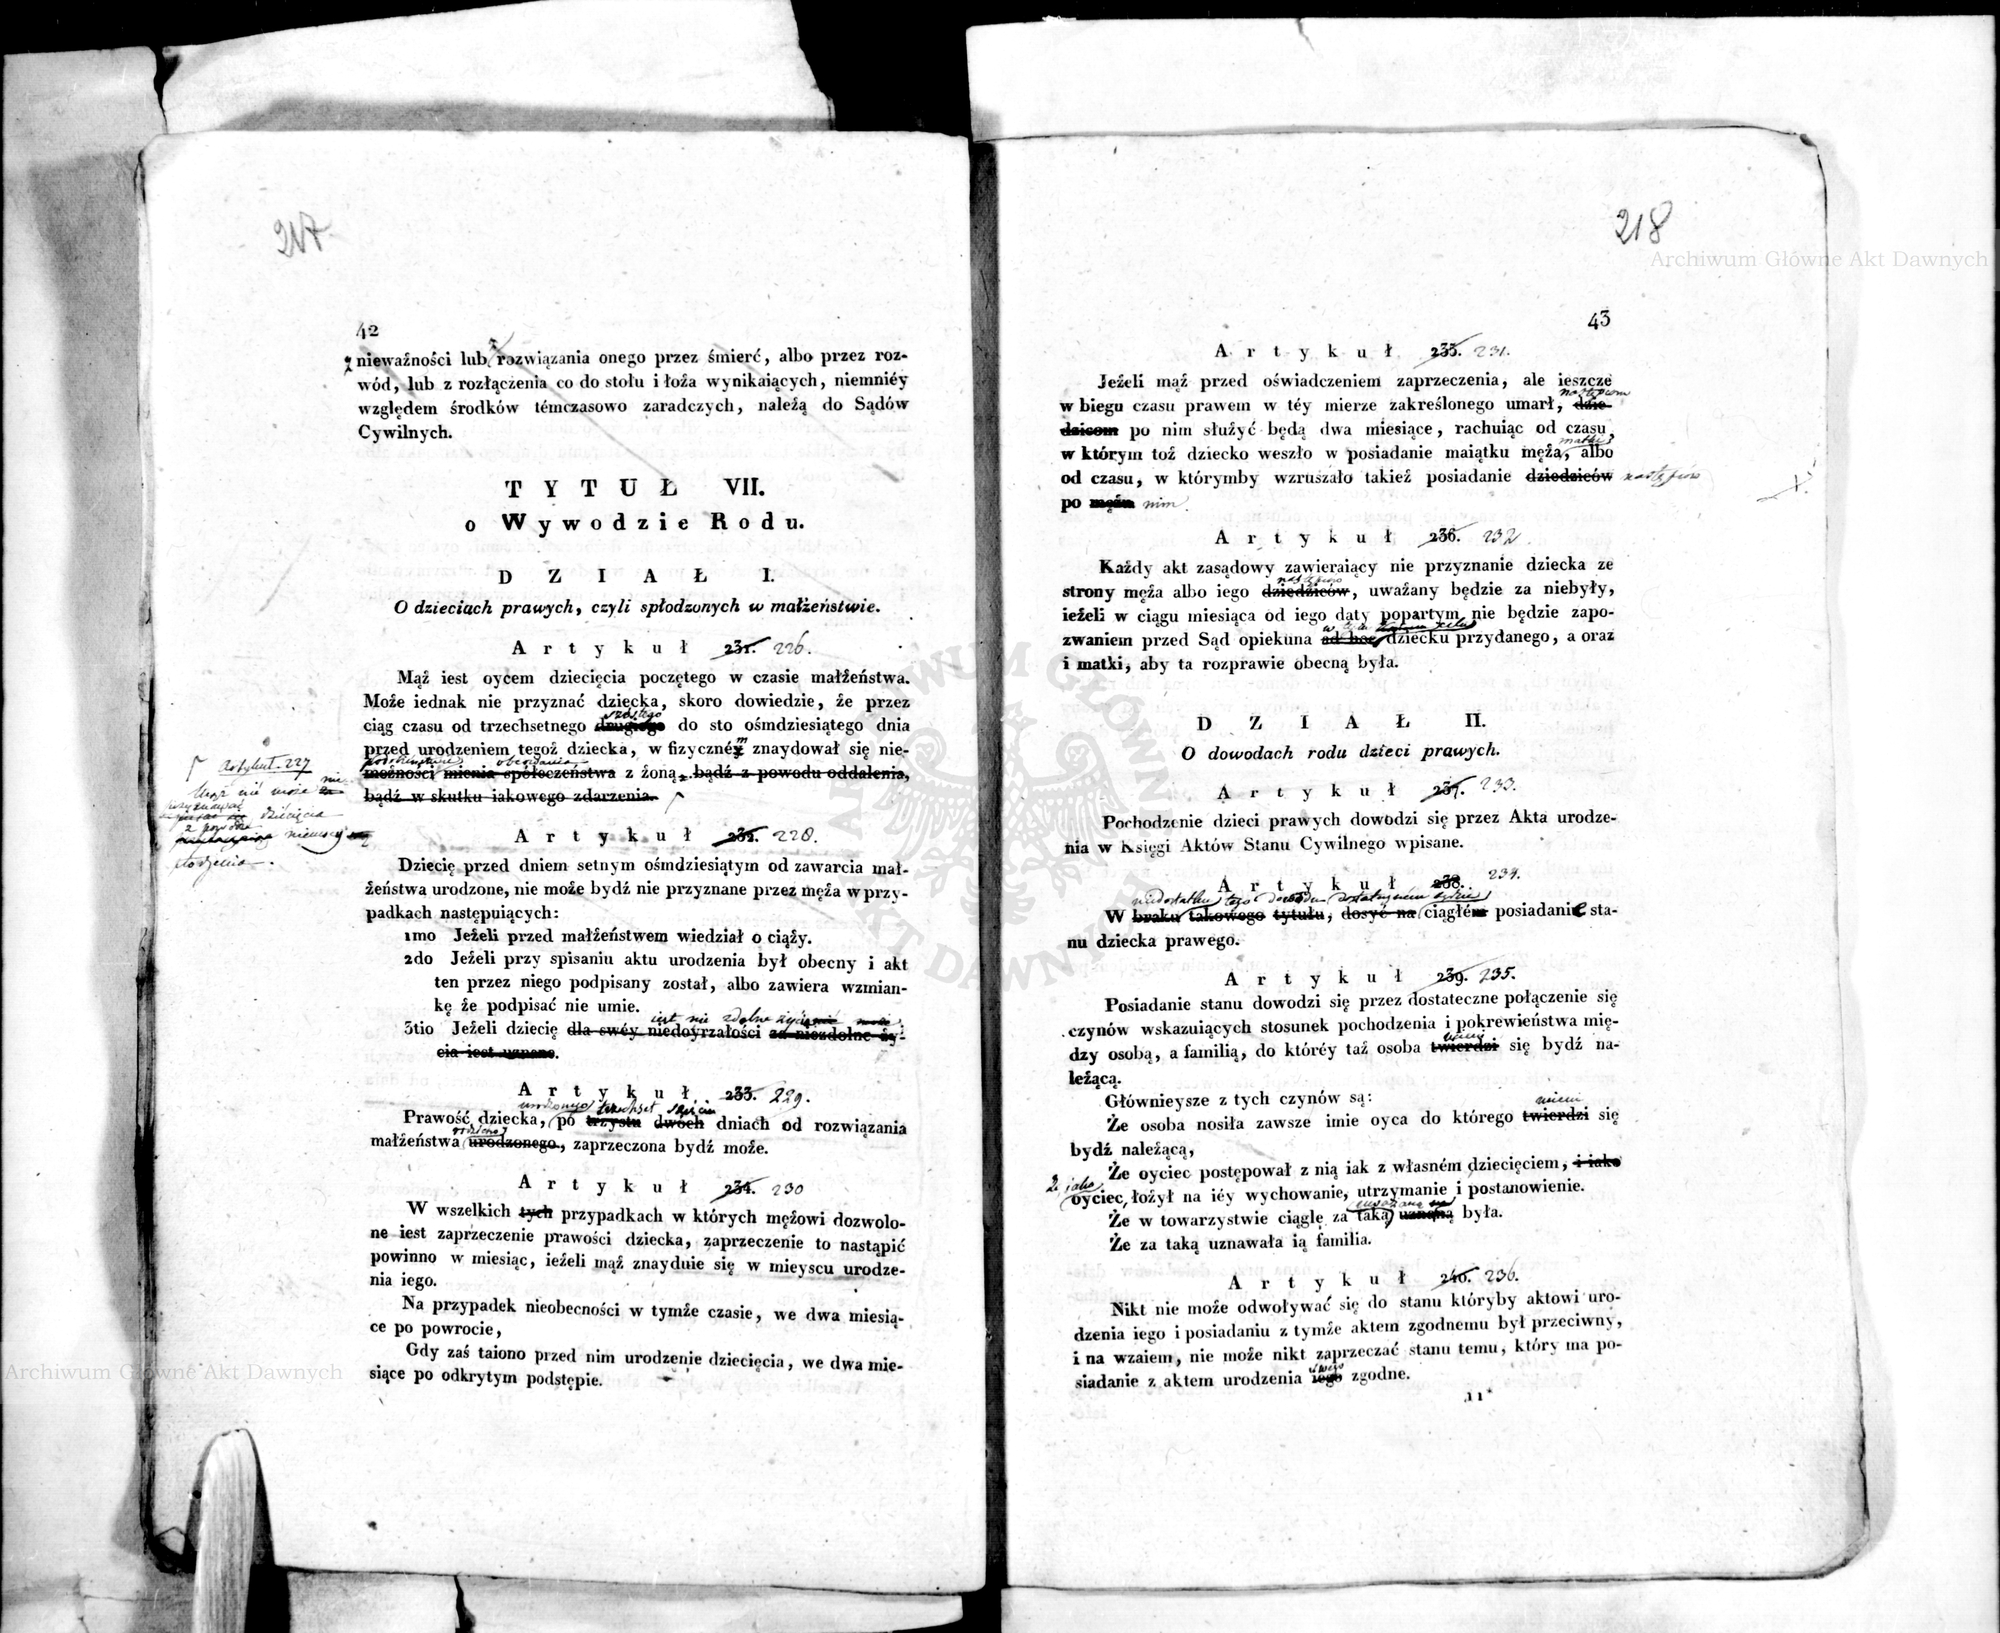 217
42
nieważności lub rozwiązania onego przez śmierć, albo przez roz-
wód, lub z rozłączenia co do stołu i łoża wynikaiących, niemniéy
względem środków témczasowo zaradczych, należą do Sądów
Cywilnych.
TYTUŁ VII.
o Wywodzie Rodu.
DZIAŁ I.
O dzieciach prawych, czyli spłodzonych w małżeństwie.
Artykuł 231. 226.
Mąż iest oycem dziecięcia poczętego w czasie małżeństwa.
Może iednak nie przyznać dziecka, skoro dowiedzie, że przez
szóstego
ciąg czasu od trzechsetnego drugiego do sto ośmdziesiątego dnia
przed urodzeniem tegoż dziecka, w fizyczném znaydował się nie-
podobieństwie obcowania
możności mienia społeczeństwa z żoną, bądź z powodu oddalenia,
bądź w skutku iakowego zdarzenia.
Artykuł 227
Mąż nie może nie
przyznawać dziecięcia
z powodu niemocy
Artykuł 232. 228.
Dziecię przed dniem setnym ośmdziesiątym od zawarcia mał-
żeństwa urodzone, nie może bydź nie przyznane przez męża w przy-
padkach następuiących:
1mo Jeżeli przed małżeństwem wiedział o ciąży.
2do Jeżeli przy spisaniu aktu urodzenia był obecny i akt
ten przez niego podpisany został, albo zawiera wzmian-
kę że podpisać nie umie.
iest nie zdolne życia
3tio Jeżeli dziecię dla swéy niedoyrzałości za niezdolne ży-
cia iest uznane.
Artykuł 233. 229.
urodzonego trzechset sześciu
Prawość dziecka, po trzystu dwóch dniach od rozwiązania
małżeństwa urodzonego, zaprzeczona bydź może.
Artykuł 234. 230
W wszelkich tych przypadkach w których mężowi dozwolo-
ne iest zaprzeczenie prawości dziecka, zaprzeczenie to nastąpić
powinno w miesiąc, ieżeli mąż znayduie się w mieyscu urodze-
nia iego.
Na przypadek nieobecności w tymże czasie, we dwa miesią-
ce po powrocie,
Gdy zaś taiono przed nim urodzenie dziecięcia, we dwa mie-
siące po odkrytym podstępie.
Archiwum Główne Akt Dawnych
218
Archiwum Główne Akt Dawnych
43
Artykuł 235. 231.
Jeżeli mąż przed oświadczeniem zaprzeczenia, ale ieszcze
następcom
w biegu czasu prawem w téy mierze zakreślonego umarł, dzie-
dzicom po nim służyć będą dwa miesiące, rachuiąc od czasu
matki
w którym toż dziecko weszło w posiadanie maiątku męża, albo
od czasu, w którymby wzruszało takież posiadanie dziedziców następców
po mężu nim.
Artykuł 236. 232.
Każdy akt zasądowy zawieraiący nie przyznanie dziecka ze
następców
strony męża albo iego dziedziców, uważany będzie za niebyły,
ieżeli w ciągu miesiąca od iego daty popartym nie będzie zapo-
zwaniem przed Sąd opiekuna ad hoc dziecku przydanego, a oraz
i matki, aby ta rozprawie obecną była.
DZIAŁ II.
O dowodach rodu dzieci prawych.
Artykuł 237. 233.
Pochodzenie dzieci prawych dowodzi się przez Akta urodze-
nia w Księgi Aktów Stanu Cywilnego wpisane.
Artykuł 238. 234.
niedostatku tego dowodu dostatecznem będzie
W braku takowego tytułu, dosyć na ciągłém posiadanie sta-
nu dziecka prawego.
Artykuł 239. 235.
Posiadanie stanu dowodzi się przez dostateczne połączenie się
czynów wskazuiących stosunek pochodzenia i pokrewieństwa mię-
mieni
dzy osobą, a familią, do któréy taż osoba twierdzi się bydź na-
leżącą.
Główniéysze z tych czynów są:
mieni
Że osoba nosiła zawsze imie oyca do którego twierdzi się
bydź należącą,
Że oyciec postępował z nią iak z własném dziecięciem, i iako
Że jako
oyciec, łożył na iéy wychowanie, utrzymanie i postanowienie.
uważaną
Że w towarzystwie ciągle za taką uznaną była.
Że za taką uznawała ią familia.
Artykuł 240. 236.
Nikt nie może odwoływać się do stanu któryby aktowi uro-
dzenia iego i posiadaniu z tymże aktem zgodnemu był przeciwny,
i na wzaiem, nie może nikt zaprzeczać stanu temu, który ma po-
swego
siadanie z aktem urodzenia iego zgodne.
11*
ARCHIWUM GŁÓWNE AKT DAWNYCH